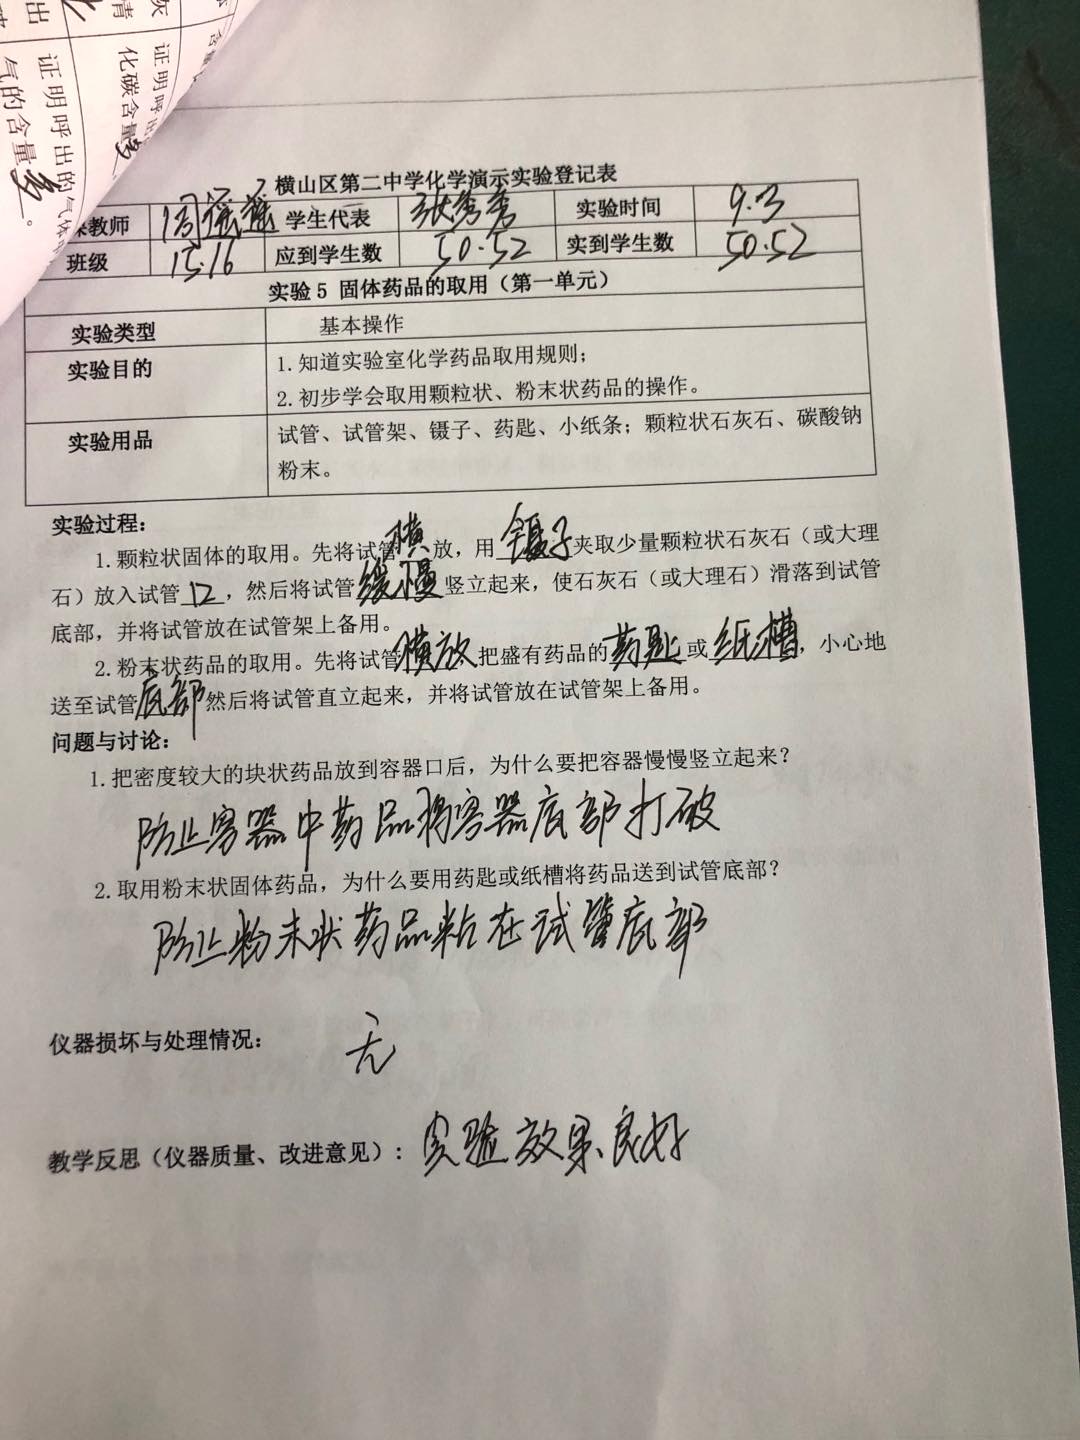 证明呼出的气体
气的含量多。
化碳含量多
横山区第二中学化学演示实验登记表
课教师 周瑶瑶 学生代表 张秀秀 实验时间 9.3
班级 15.16 应到学生数 50.52 实到学生数 50.52
实验5 固体药品的取用（第一单元）
实验类型 基本操作
实验目的 1.知道实验室化学药品取用规则；
2.初步学会取用颗粒状、粉末状药品的操作。
实验用品 试管、试管架、镊子、药匙、小纸条；颗粒状石灰石、碳酸钠
粉末。
实验过程：
1.颗粒状固体的取用。先将试管横放，用镊子夹取少量颗粒状石灰石（或大理
石）放入试管口，然后将试管缓慢竖立起来，使石灰石（或大理石）滑落到试管
底部，并将试管放在试管架上备用。
2.粉末状药品的取用。先将试管横放把盛有药品的药匙或纸槽，小心地
送至试管底部然后将试管直立起来，并将试管放在试管架上备用。
问题与讨论：
1.把密度较大的块状药品放到容器口后，为什么要把容器慢慢竖立起来？
防止容器中药品将容器底部打破
2.取用粉末状固体药品，为什么要用药匙或纸槽将药品送到试管底部？
防止粉末状药品粘在试管底部
仪器损坏与处理情况： 无
教学反思（仪器质量、改进意见）：实验效果良好